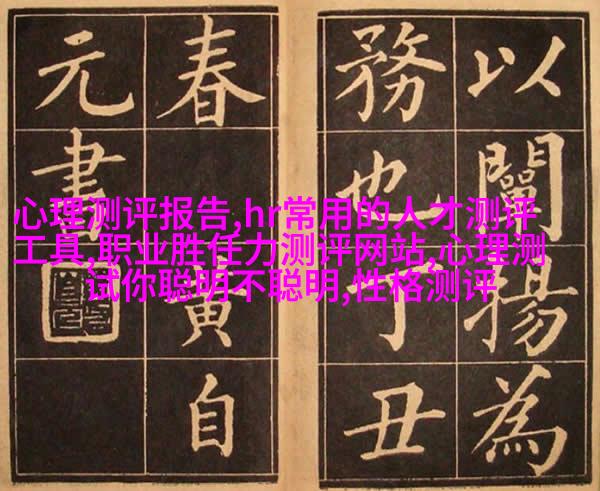 以闡揚為
務也丁丑
春黃自
元書
心理测评报告,hr常用的人才测评
工具,职业胜任力测评网站,心理测
试你聪明不聪明,性格测评